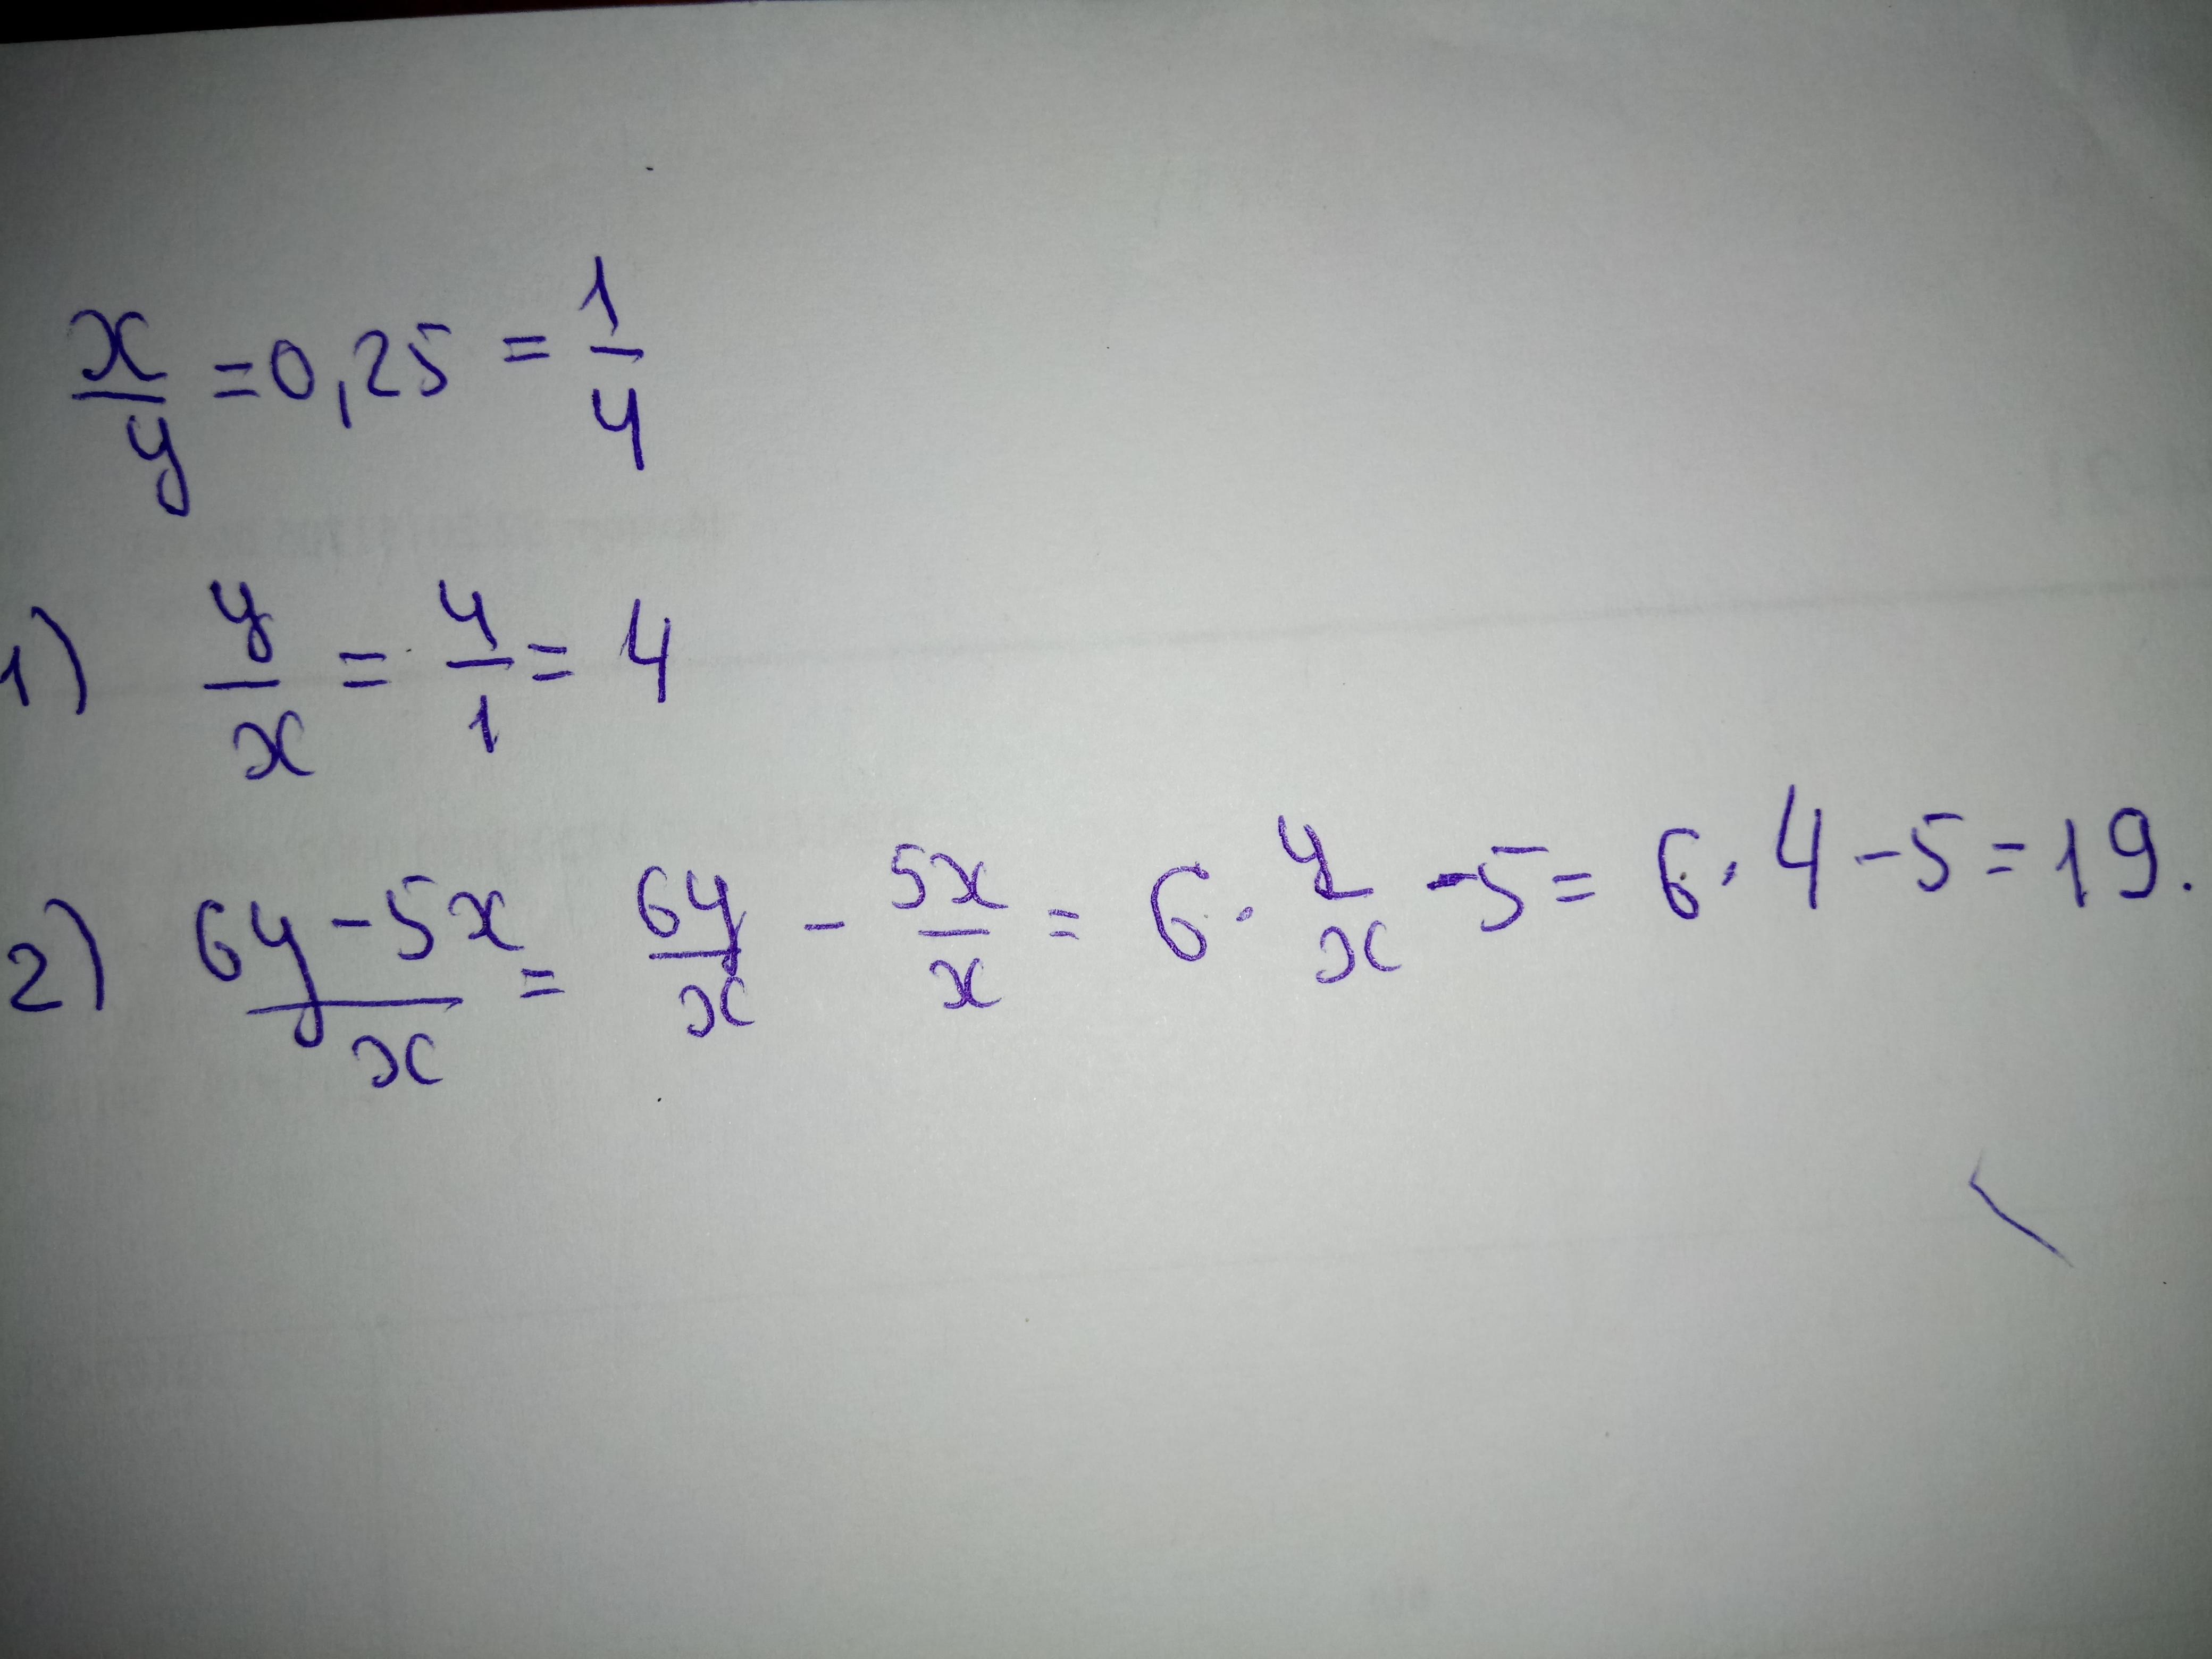 x/y = 0,25 = 1/4
1) y/x = 4/1 = 4
2) (6y - 5x)/x = 6y/x - 5x/x = 6 · y/x - 5 = 6 · 4 - 5 = 19.